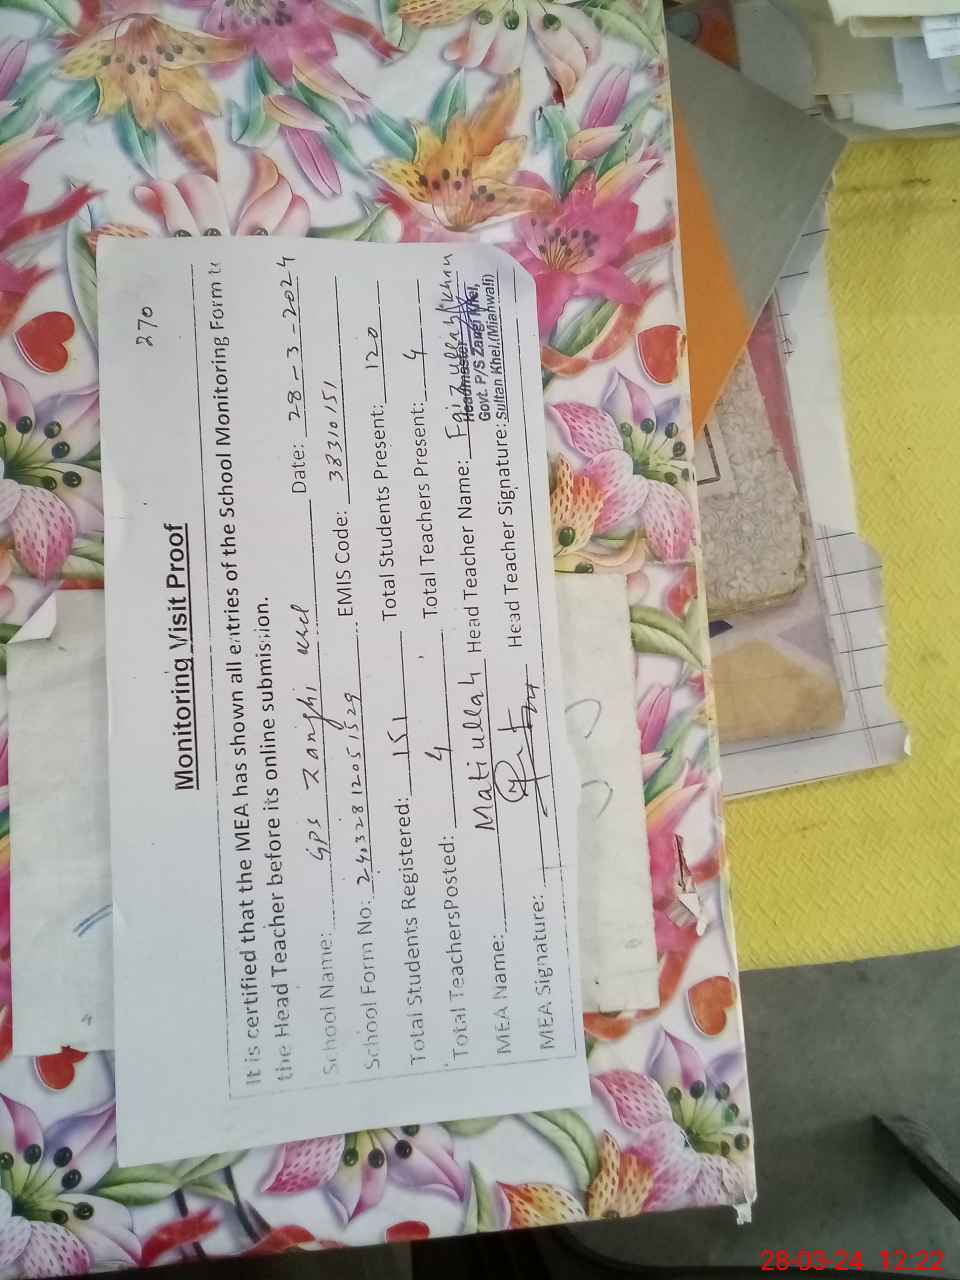 270
Monitoring Visit Proof
It is certified that the MEA has shown all entries of the School Monitoring Form to
the Head Teacher before its online submission.
School Name: GPS Zanghi Khel Date: 28-3-2024
School Form No: 24032812051529 EMIS Code: 38310151
Total Students Registered: 151 Total Students Present: 120
Total TeachersPosted: 4 Total Teachers Present: 4
MEA Name: Matiullah Head Teacher Name: Faizullah Khan
MEA Signature: Head Teacher Signature:
Headmaster
Govt. P/S Zangi Khel,
Sultan Khel,(Mianwali)
28-03-24 12:22